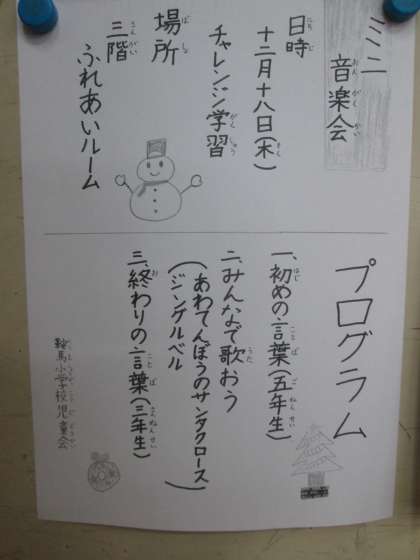 ミニ音楽会
日時
十二月十八日(木)
チャレンジ学習
場所
三階
ふれあいルーム
プログラム
一、初めの言葉(五年生)
二、みんなで歌おう
(あわてんぼうのサンタクロース
ジングルベル)
三、終わりの言葉(三年生)
鞍馬小学校児童会